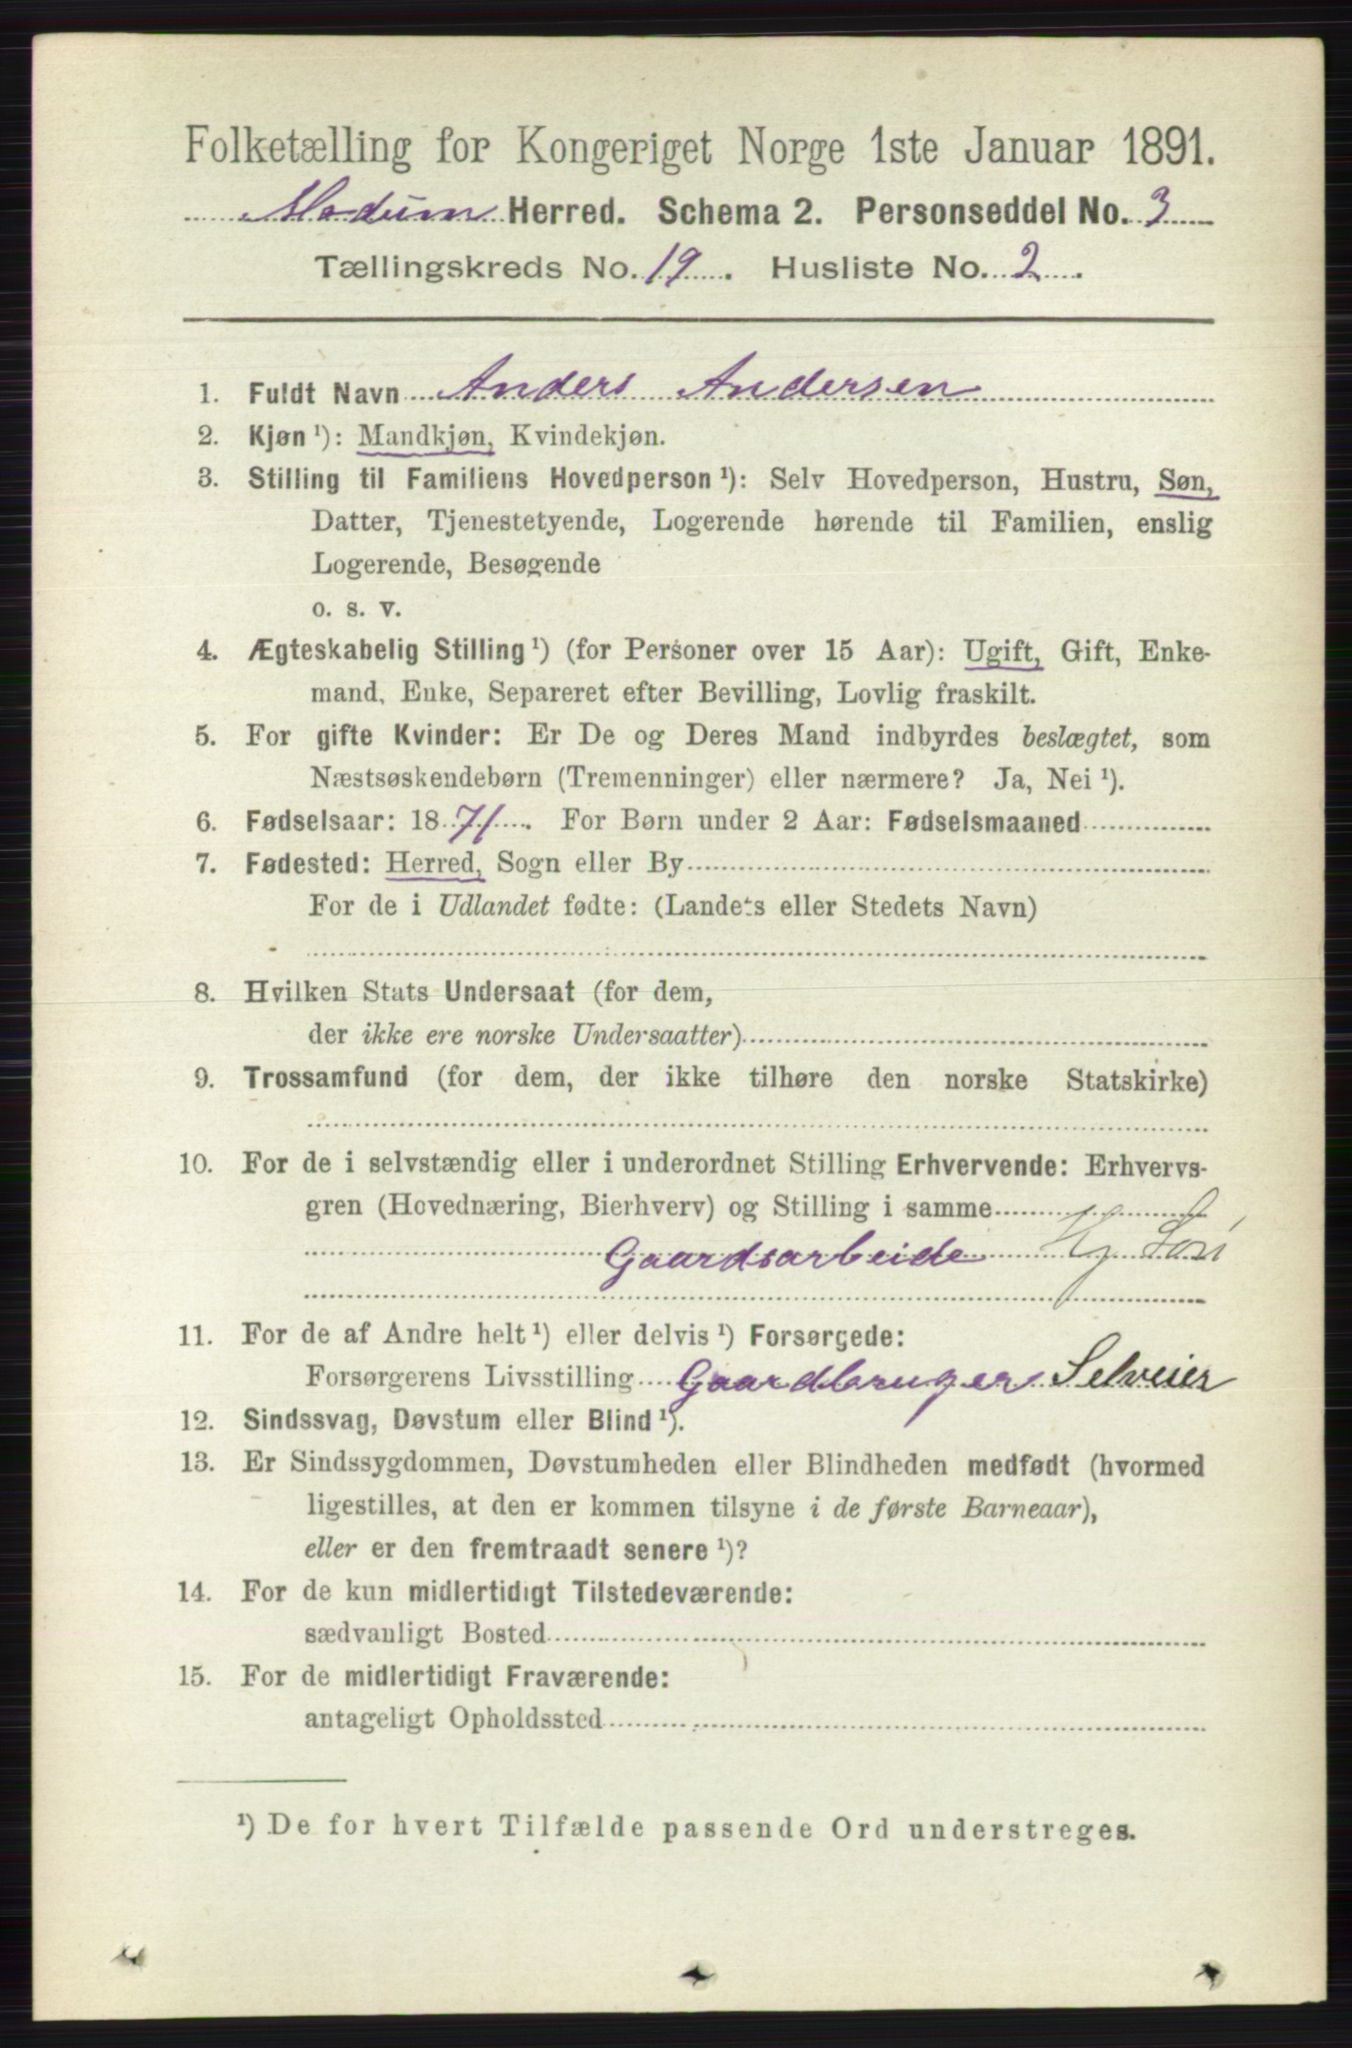 Folketælling for Kongeriget Norge 1ste Januar 1891.
Modum Herred. Schema 2. Personseddel No. 3
Tællingskreds No. 19. Husliste No. 2.
1. Fuldt Navn Anders Andersen
2. Kjøn ¹): Mandkjøn, Kvindekjøn.
3. Stilling til Familiens Hovedperson ¹): Selv Hovedperson, Hustru, Søn,
Datter, Tjenestetyende, Logerende hørende til Familien, enslig
Logerende, Besøgende
o. s. v.
4. Ægteskabelig Stilling ¹) (for Personer over 15 Aar): Ugift, Gift, Enke-
mand, Enke, Separeret efter Bevilling, Lovlig fraskilt.
5. For gifte Kvinder: Er De og Deres Mand indbyrdes beslægtet, som
Næstsøskendebørn (Tremenninger) eller nærmere? Ja, Nei ¹).
6. Fødselsaar: 1871. For Børn under 2 Aar: Fødselsmaaned
7. Fødested: Herred, Sogn eller By
For de i Udlandet fødte: (Landets eller Stedets Navn)
8. Hvilken Stats Undersaat (for dem,
der ikke ere norske Undersaatter)
9. Trossamfund (for dem, der ikke tilhøre den norske Statskirke)
10. For de i selvstændig eller i underordnet Stilling Erhvervende: Erhvervs-
gren (Hovednæring, Bierhverv) og Stilling i samme
Gaardsarbeide
11. For de af Andre helt ¹) eller delvis ¹) Forsørgede:
Forsørgerens Livsstilling Gaardbruger Selveier
12. Sindssvag, Døvstum eller Blind ¹).
13. Er Sindssygdommen, Døvstumheden eller Blindheden medfødt (hvormed
ligestilles, at den er kommen tilsyne i de første Barneaar),
eller er den fremtraadt senere ¹)?
14. For de kun midlertidigt Tilstedeværende:
sædvanligt Bosted
15. For de midlertidigt Fraværende:
antageligt Opholdssted
¹) De for hvert Tilfælde passende Ord understreges.